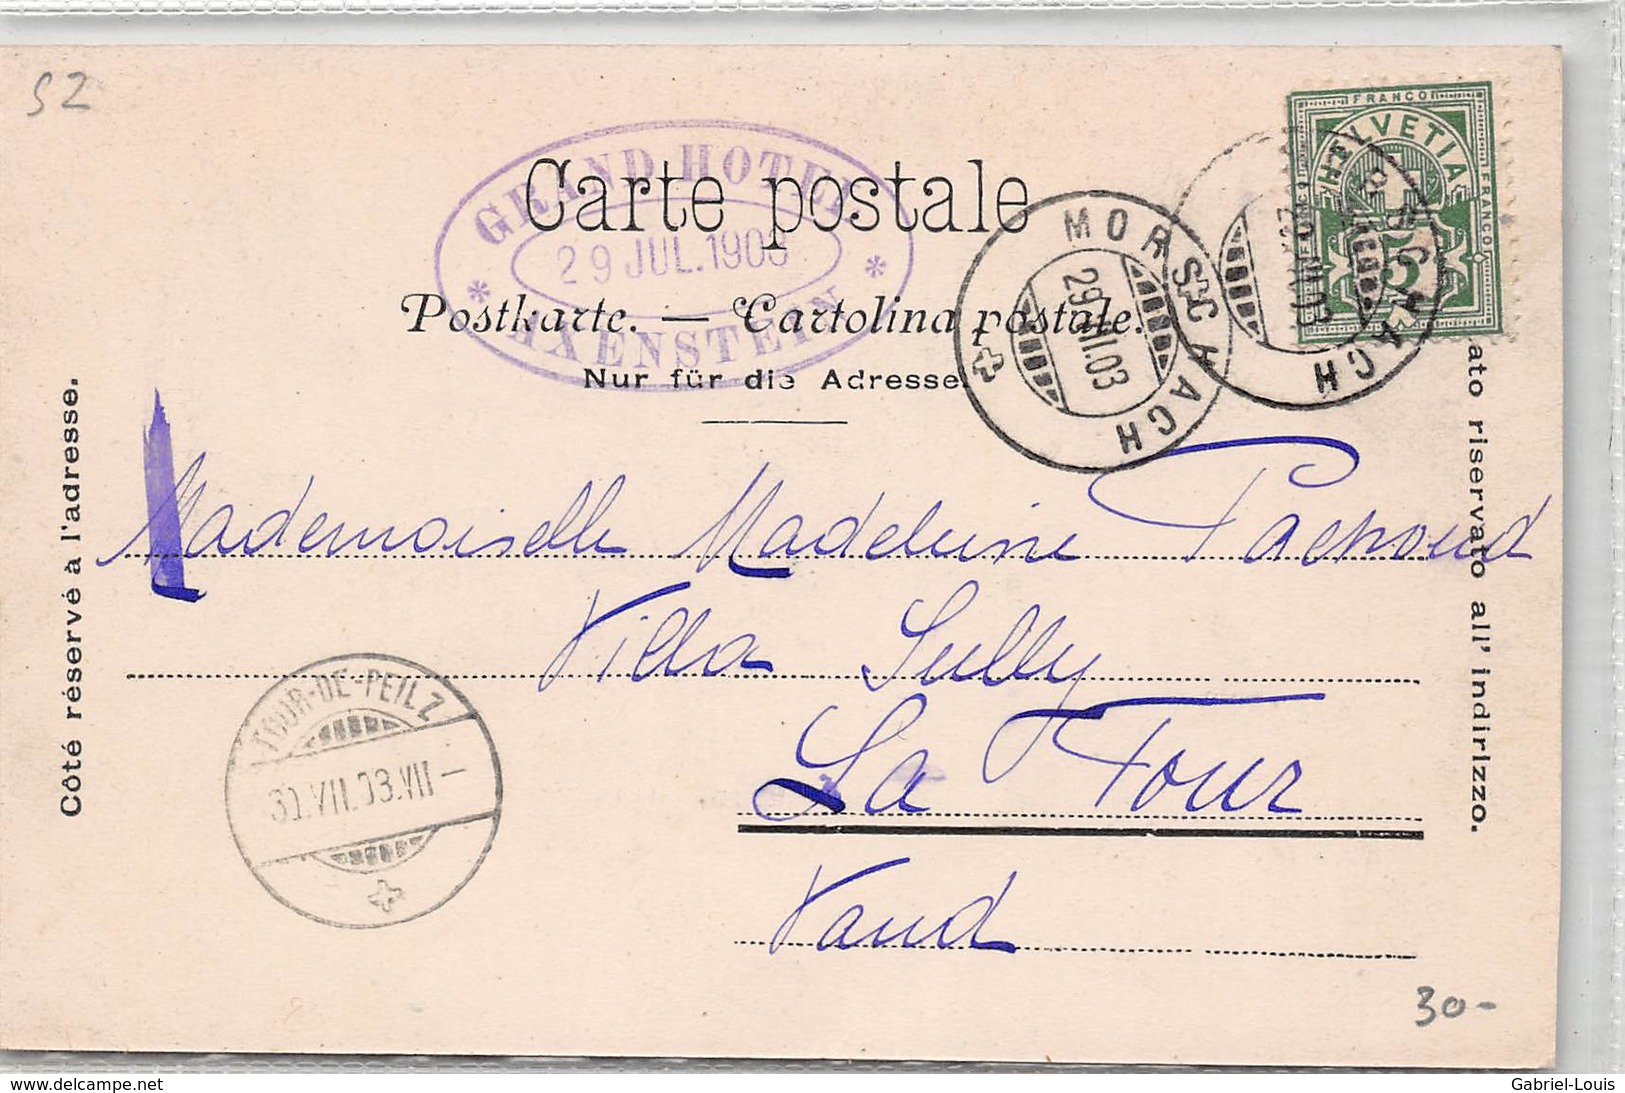 SZ
FRANCO
HELVETIA
FRANCO
5
GRAND HOTEL
29 JUL. 1903
* AXENSTEIN *
Carte postale
Postkarte. — Cartolina postale.
Nur für die Adresse.
MORSCHACH
29.VII.03
MORSCHACH
Côté réservé à l'adresse.
Lato riservato all' indirizzo.
Mademoiselle Madeleine
Villa Sully
La Tour
Vaud
TOUR-DE-PEILZ
30.VII.03.VII-
30-
www.delcampe.net
Gabriel-Louis